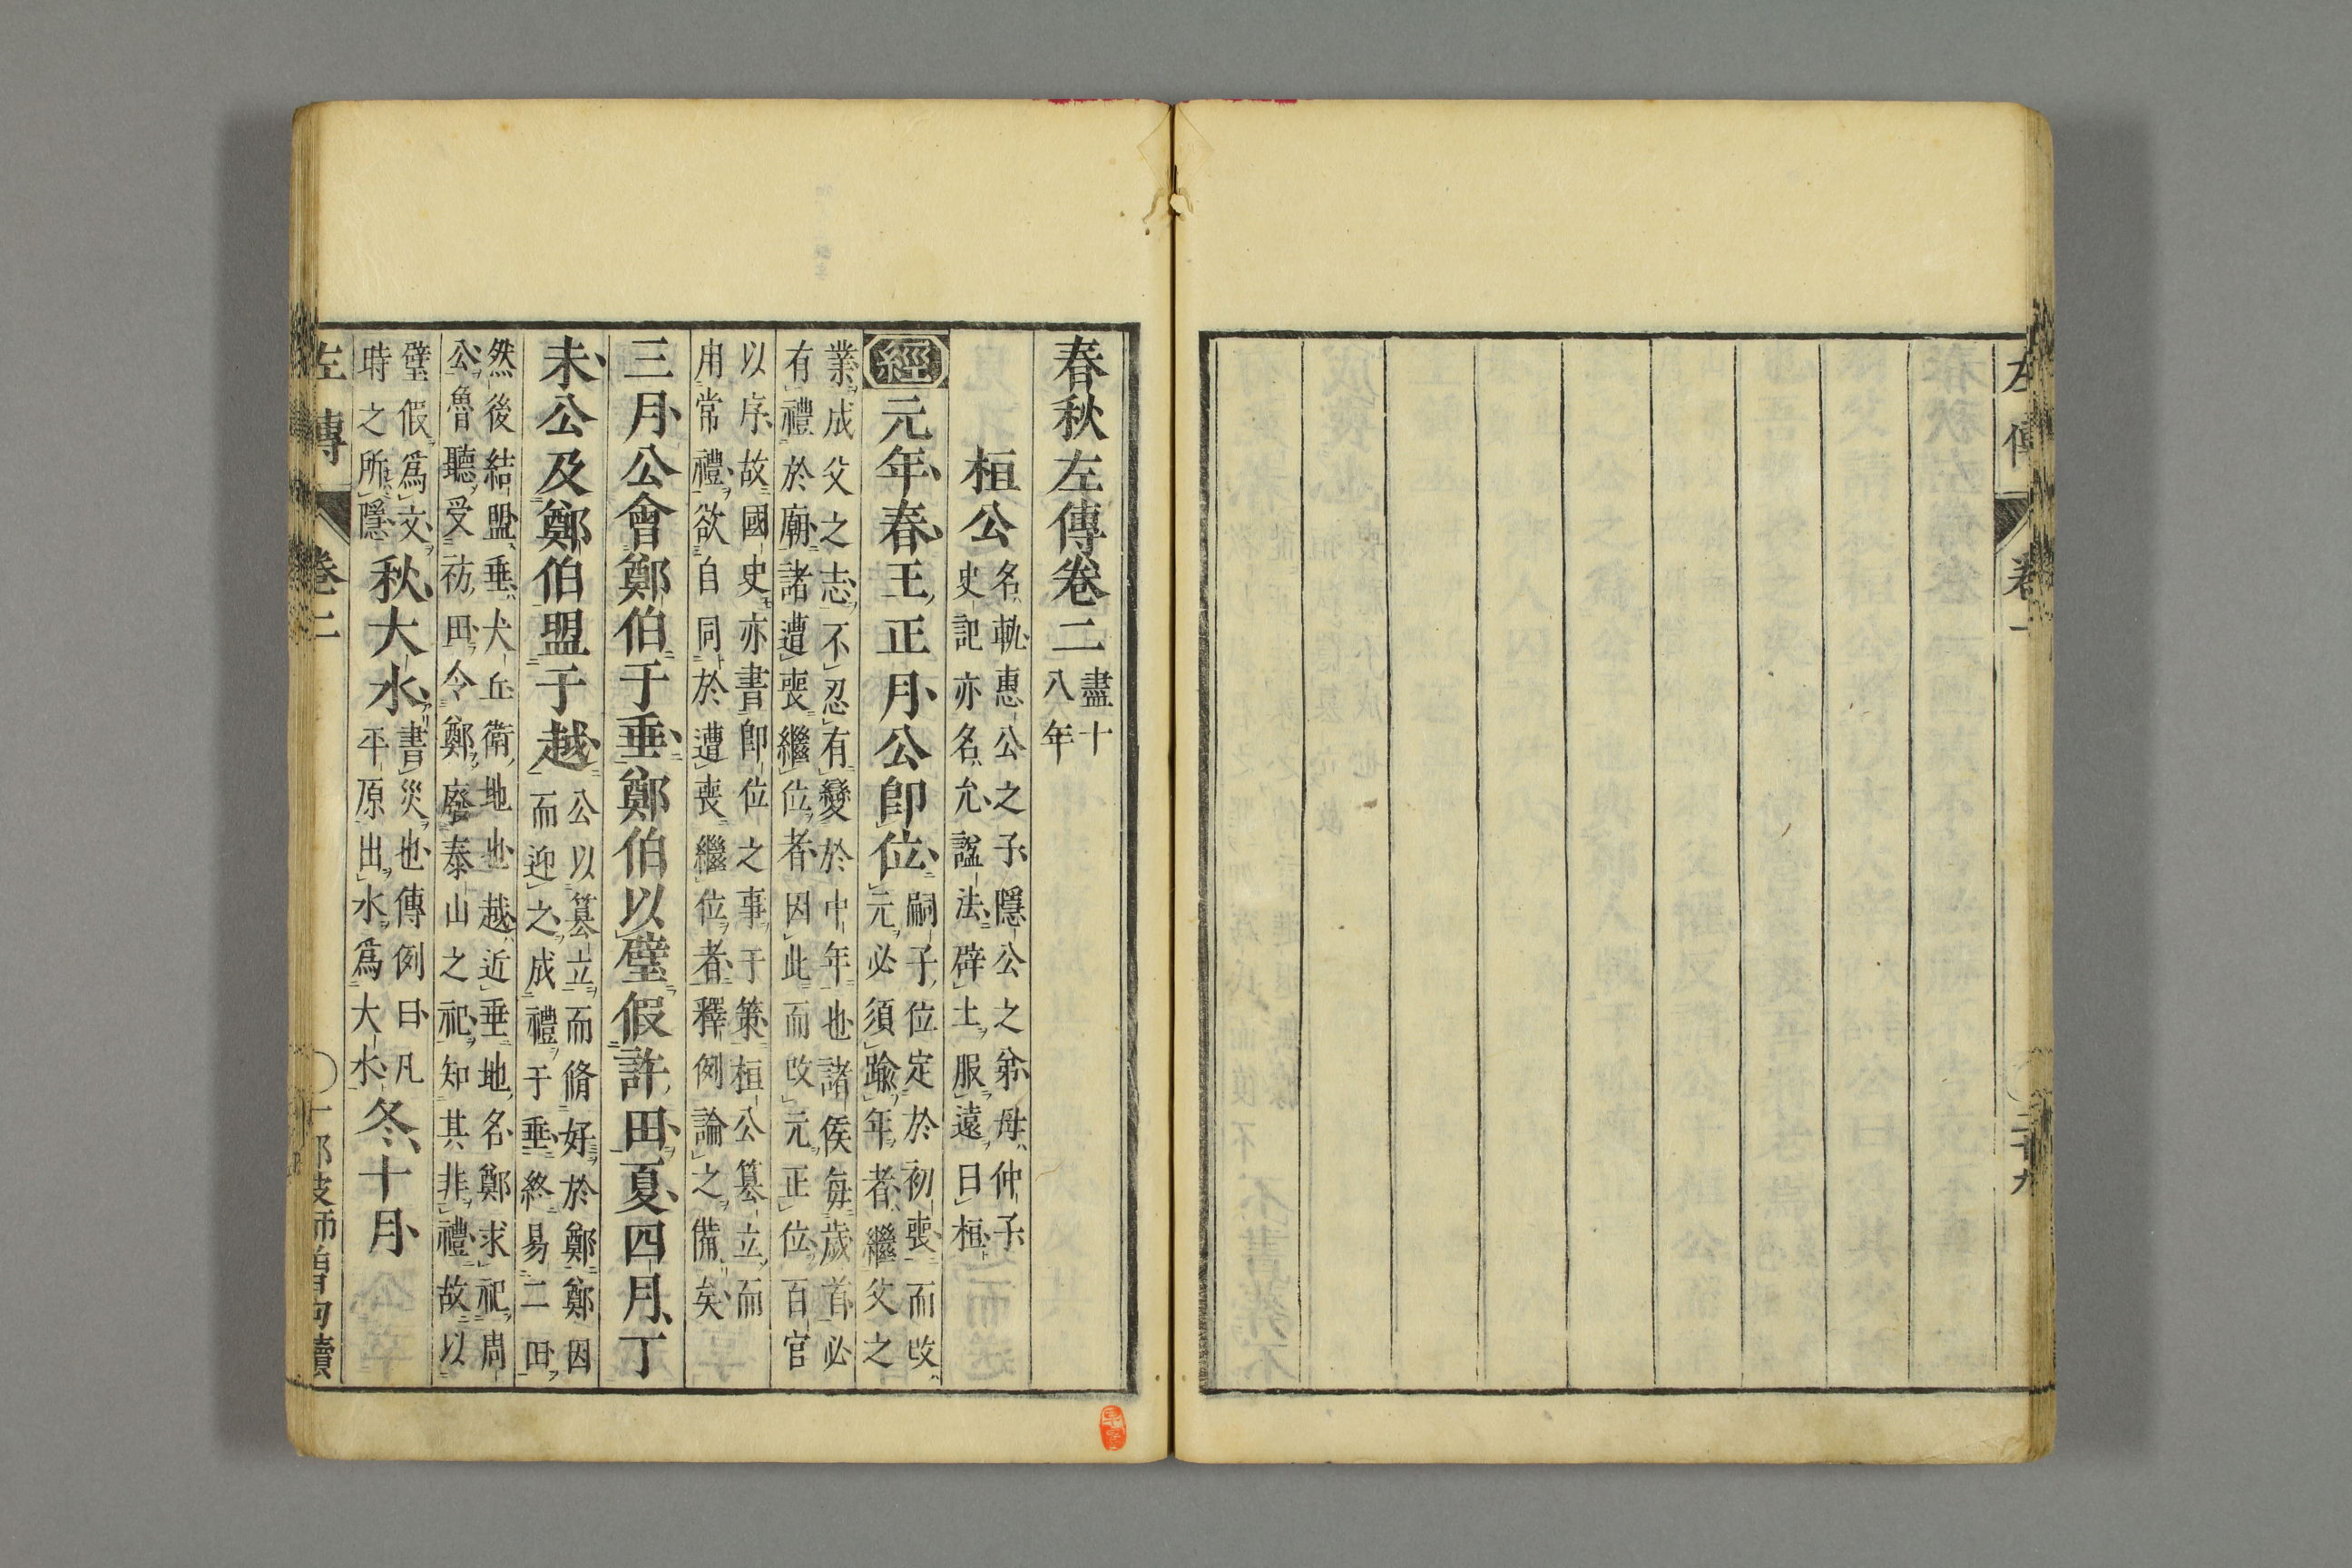 左傳　卷一　二十九
春秋左傳卷二盡十八年
桓公名軌惠公之子隱公之弟母仲子史記亦名允諡法辟土服遠曰桓
經元年春王正月公卽位嗣子位定於初喪而改元必須踰年者繼父之
業成父之志不忍有變於中年也諸侯每歲首必有禮於廟諸遭喪繼位者因此而改元正位百官
以序故國史亦書卽位之事于策桓公篡立而用常禮欲自同於遭喪繼位者釋例論之備矣
三月公會鄭伯于垂鄭伯以璧假許田夏四月丁
未公及鄭伯盟于越公以篡立而脩好於鄭鄭因而迎之成禮于垂終易二田
然後結盟垂犬丘衛地也越近垂地名鄭求祀周公魯聽受祊田令鄭廢泰山之祀知其非禮故以
璧假爲文時之所隱秋大水書災也傳例曰凡平原出水爲大水冬十月
左傳　卷二　一　那波師曾句讀